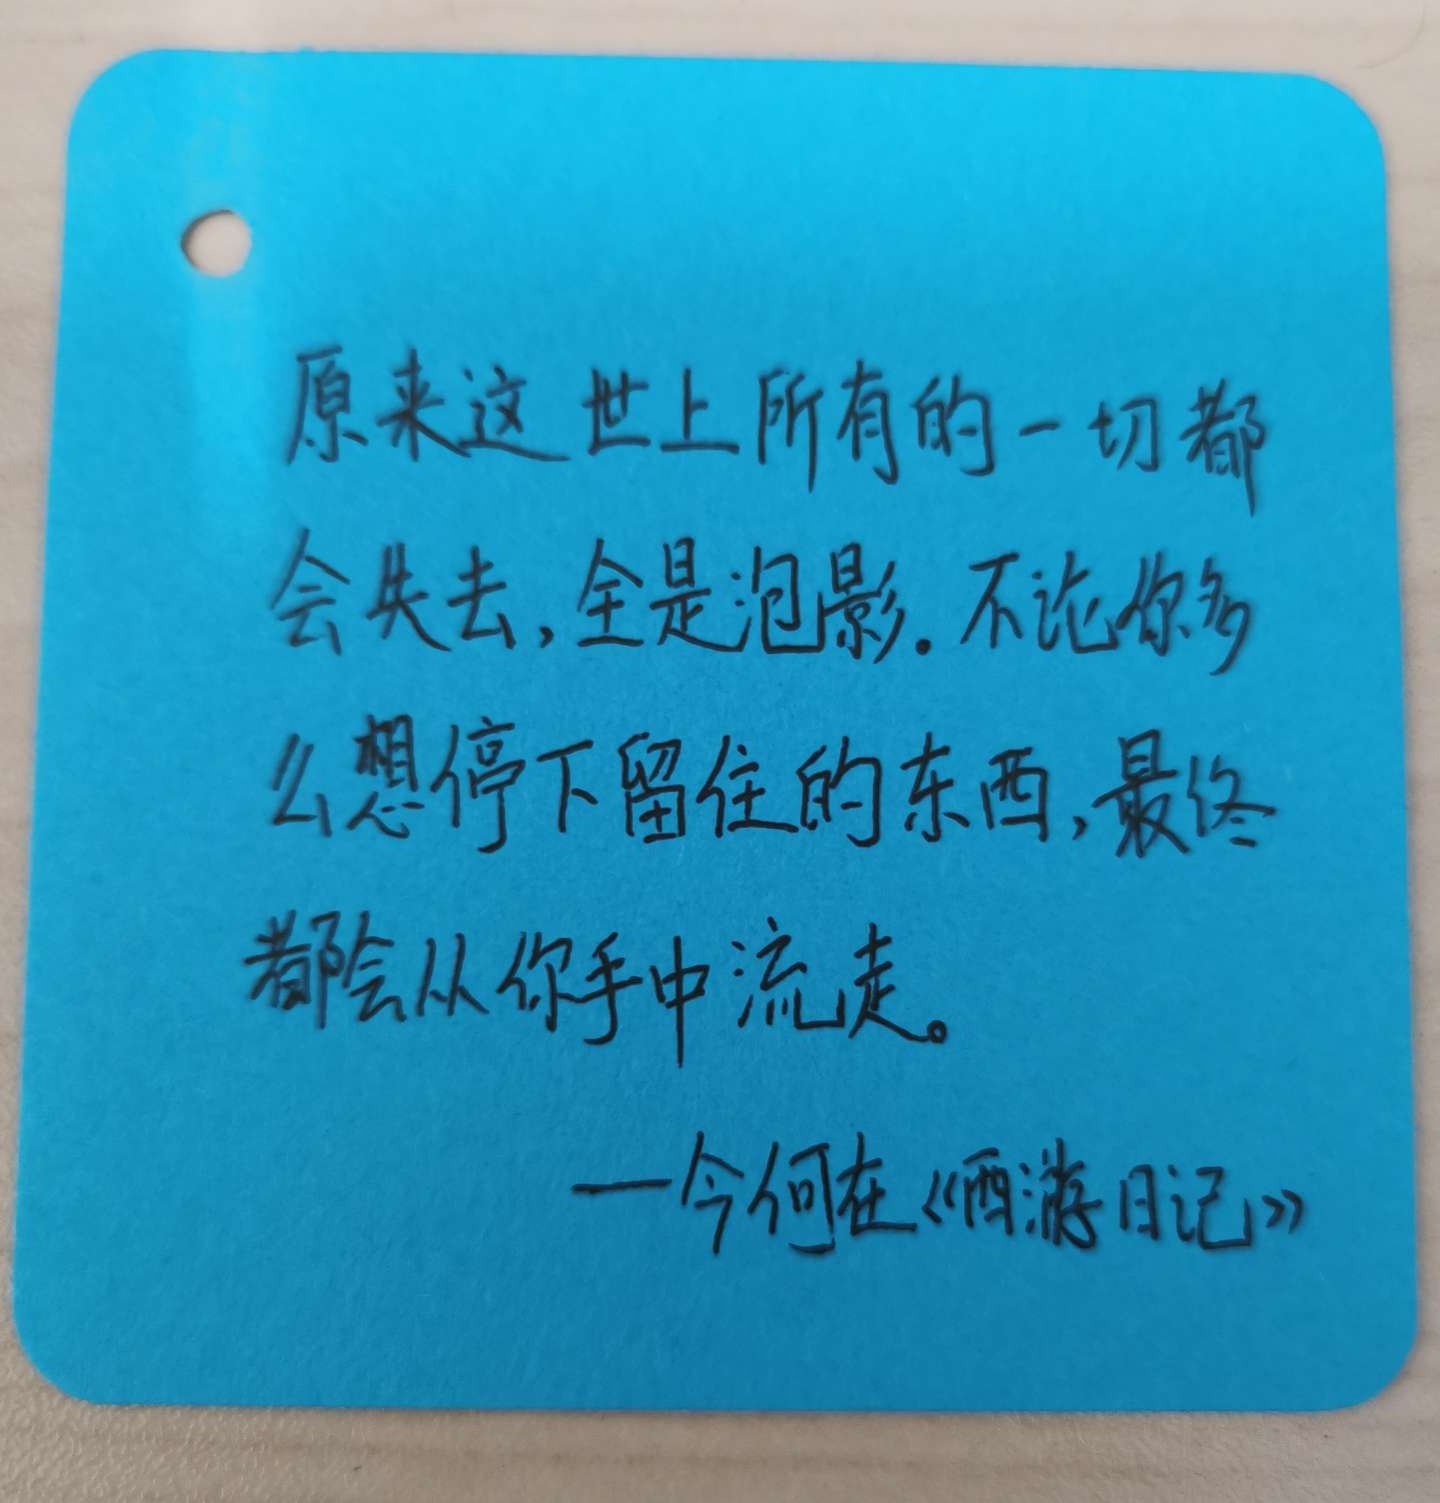 原来这世上所有的一切都
会失去,全是泡影.不论你多
么想停下留住的东西,最终
都会从你手中流走。
—今何在《西游日记》